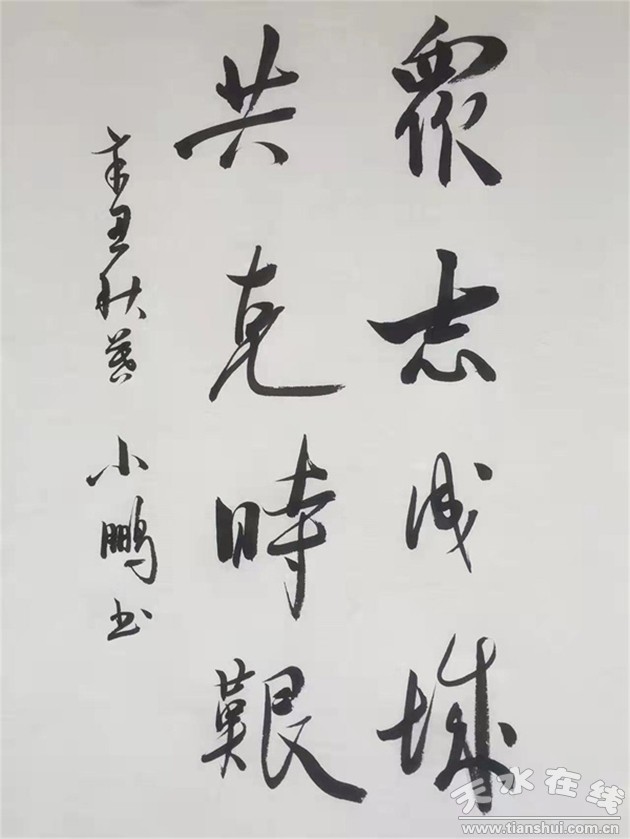 眾志成城
共克時艱
辛丑秋暮 小鹏书
天水在线
www.tianshui.com.cn